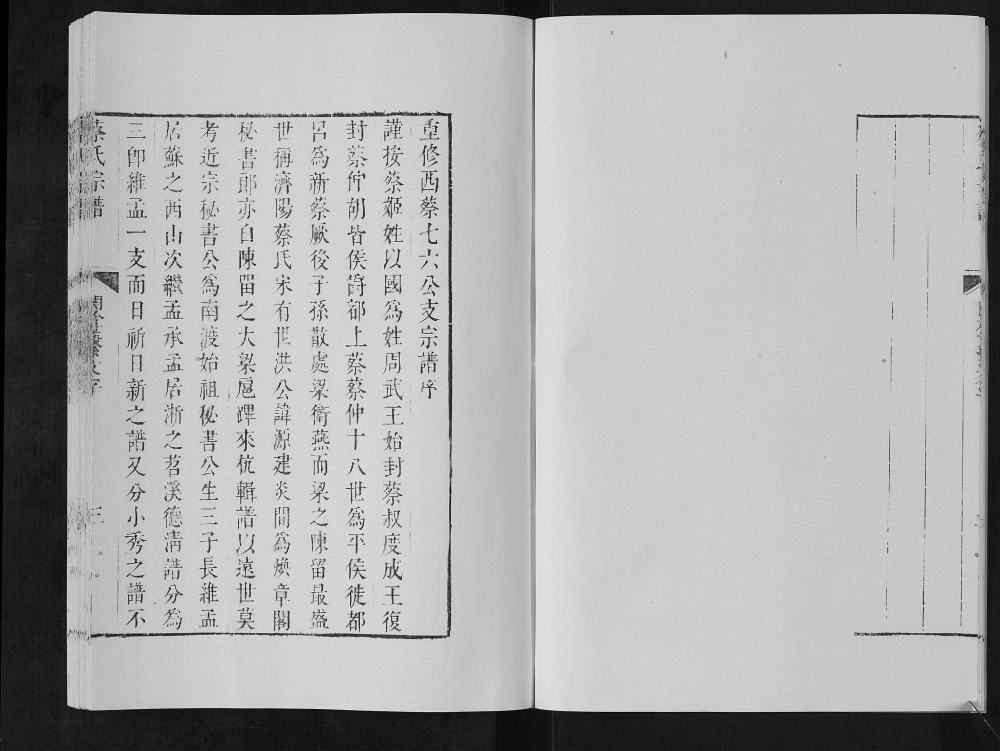 重修西蔡七六公支宗譜序
謹按蔡姬姓以國爲姓周武王始封蔡叔度成王復
封蔡仲胡皆侯爵都上蔡蔡仲十八世爲平侯徙都
呂爲新蔡厥後子孫散處梁衛燕而梁之陳留最盛
世稱濟陽蔡氏宋有世洪公諱源建炎間爲煥章閣
秘書郎亦自陳留之大梁扈蹕來杭輯譜以遠世莫
考近宗秘書公爲南渡始祖秘書公生三子長維孟
居蘇之西山次繼孟承孟居浙之苕溪德清譜分爲
三卽維孟一支而日祈日新之譜又分小秀之譜不
蔡氏宗譜
三